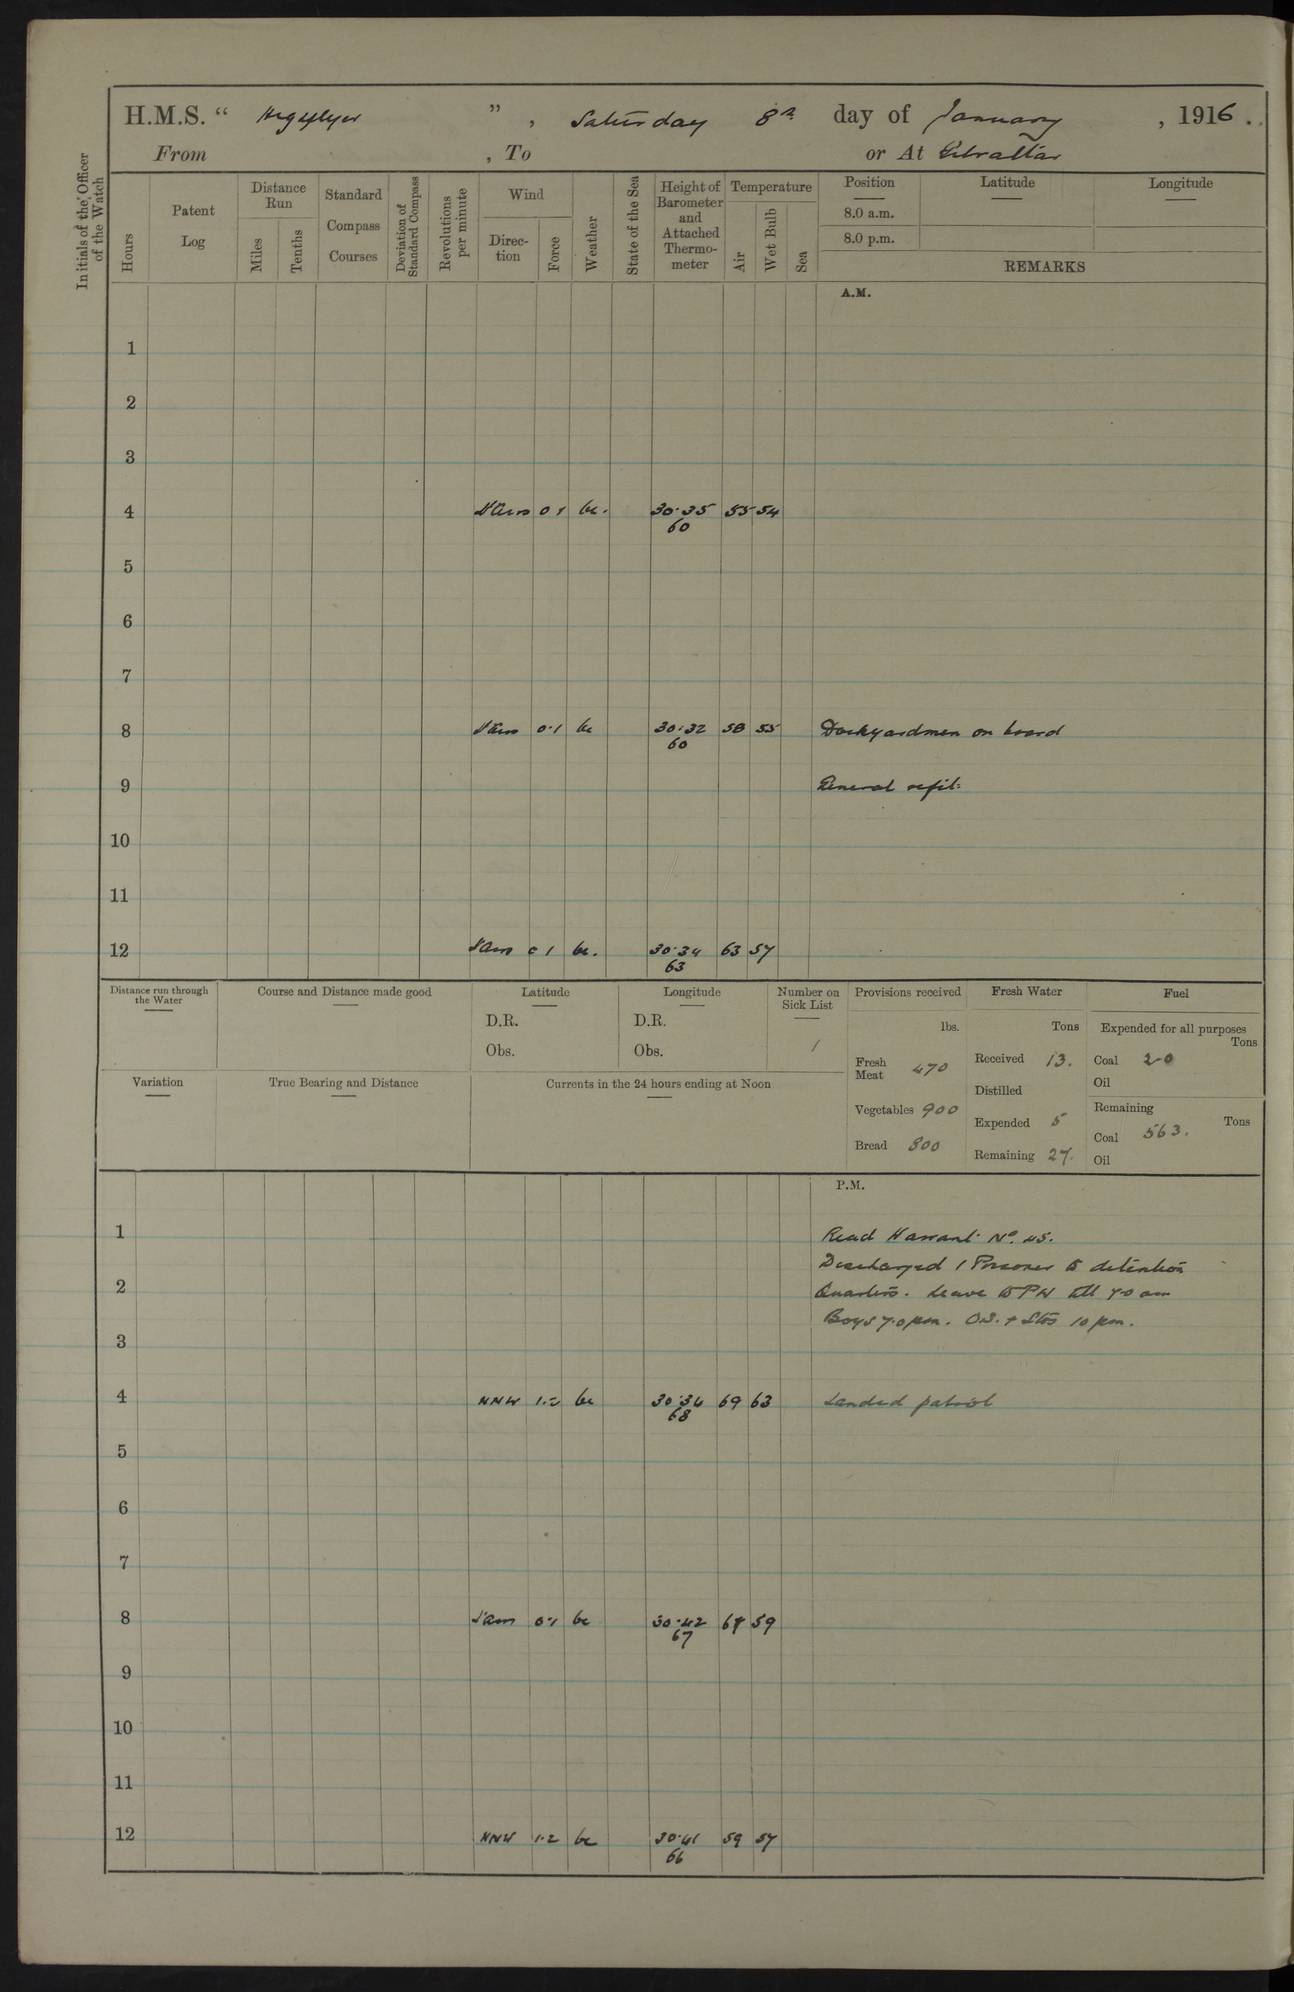 H.M.S. “ Highflyer ”, Saturday 8th day of January, 1916.
From , To or At Gibraltar
Initials of the Officer of the Watch
Hours
Patent Log
Distance Run
Miles
Tenths
Standard Compass Courses
Deviation of Standard Compass
Revolutions per minute
Wind
Direction
Force
Weather
State of the Sea
Height of Barometer and Attached Thermometer
Temperature
Air
Wet Bulb
Sea
Position
8.0 a.m.
8.0 p.m.
Latitude
Longitude
REMARKS
A.M.
1
2
3
4 0.1 bc. 30.35 55 54
60
5
6
7
8 0.1 bc 30.32 58 55 Dockyardmen on board
60
9 General refit.
10
11
12 0 1 bc. 30.34 63 57
63
Distance run through the Water
Course and Distance made good
Latitude
D.R.
Obs.
Longitude
D.R.
Obs.
Number on Sick List
1
Provisions received
lbs.
Fresh Meat 470
Vegetables 900
Bread 800
Fresh Water
Tons
Received 13.
Distilled
Expended 5
Remaining 27.
Fuel
Expended for all purposes
Tons
Coal 20
Oil
Remaining
Tons
Coal 563.
Oil
Variation
True Bearing and Distance
Currents in the 24 hours ending at Noon
P.M.
1 Read Warrant No. 45.
Discharged 1 Prisoner to detention
2 Quarters. Leave to PW till 7.0 am
Boys 7.0 pm. O.S. + Stos 10 pm.
3
4 NNW 1.2 bc 30.34 69 63 Landed patrol
68
5
6
7
8 0.1 bc 30.42 59
67
9
10
11
12 NNW 1.2 bc 30.41 59 57
66